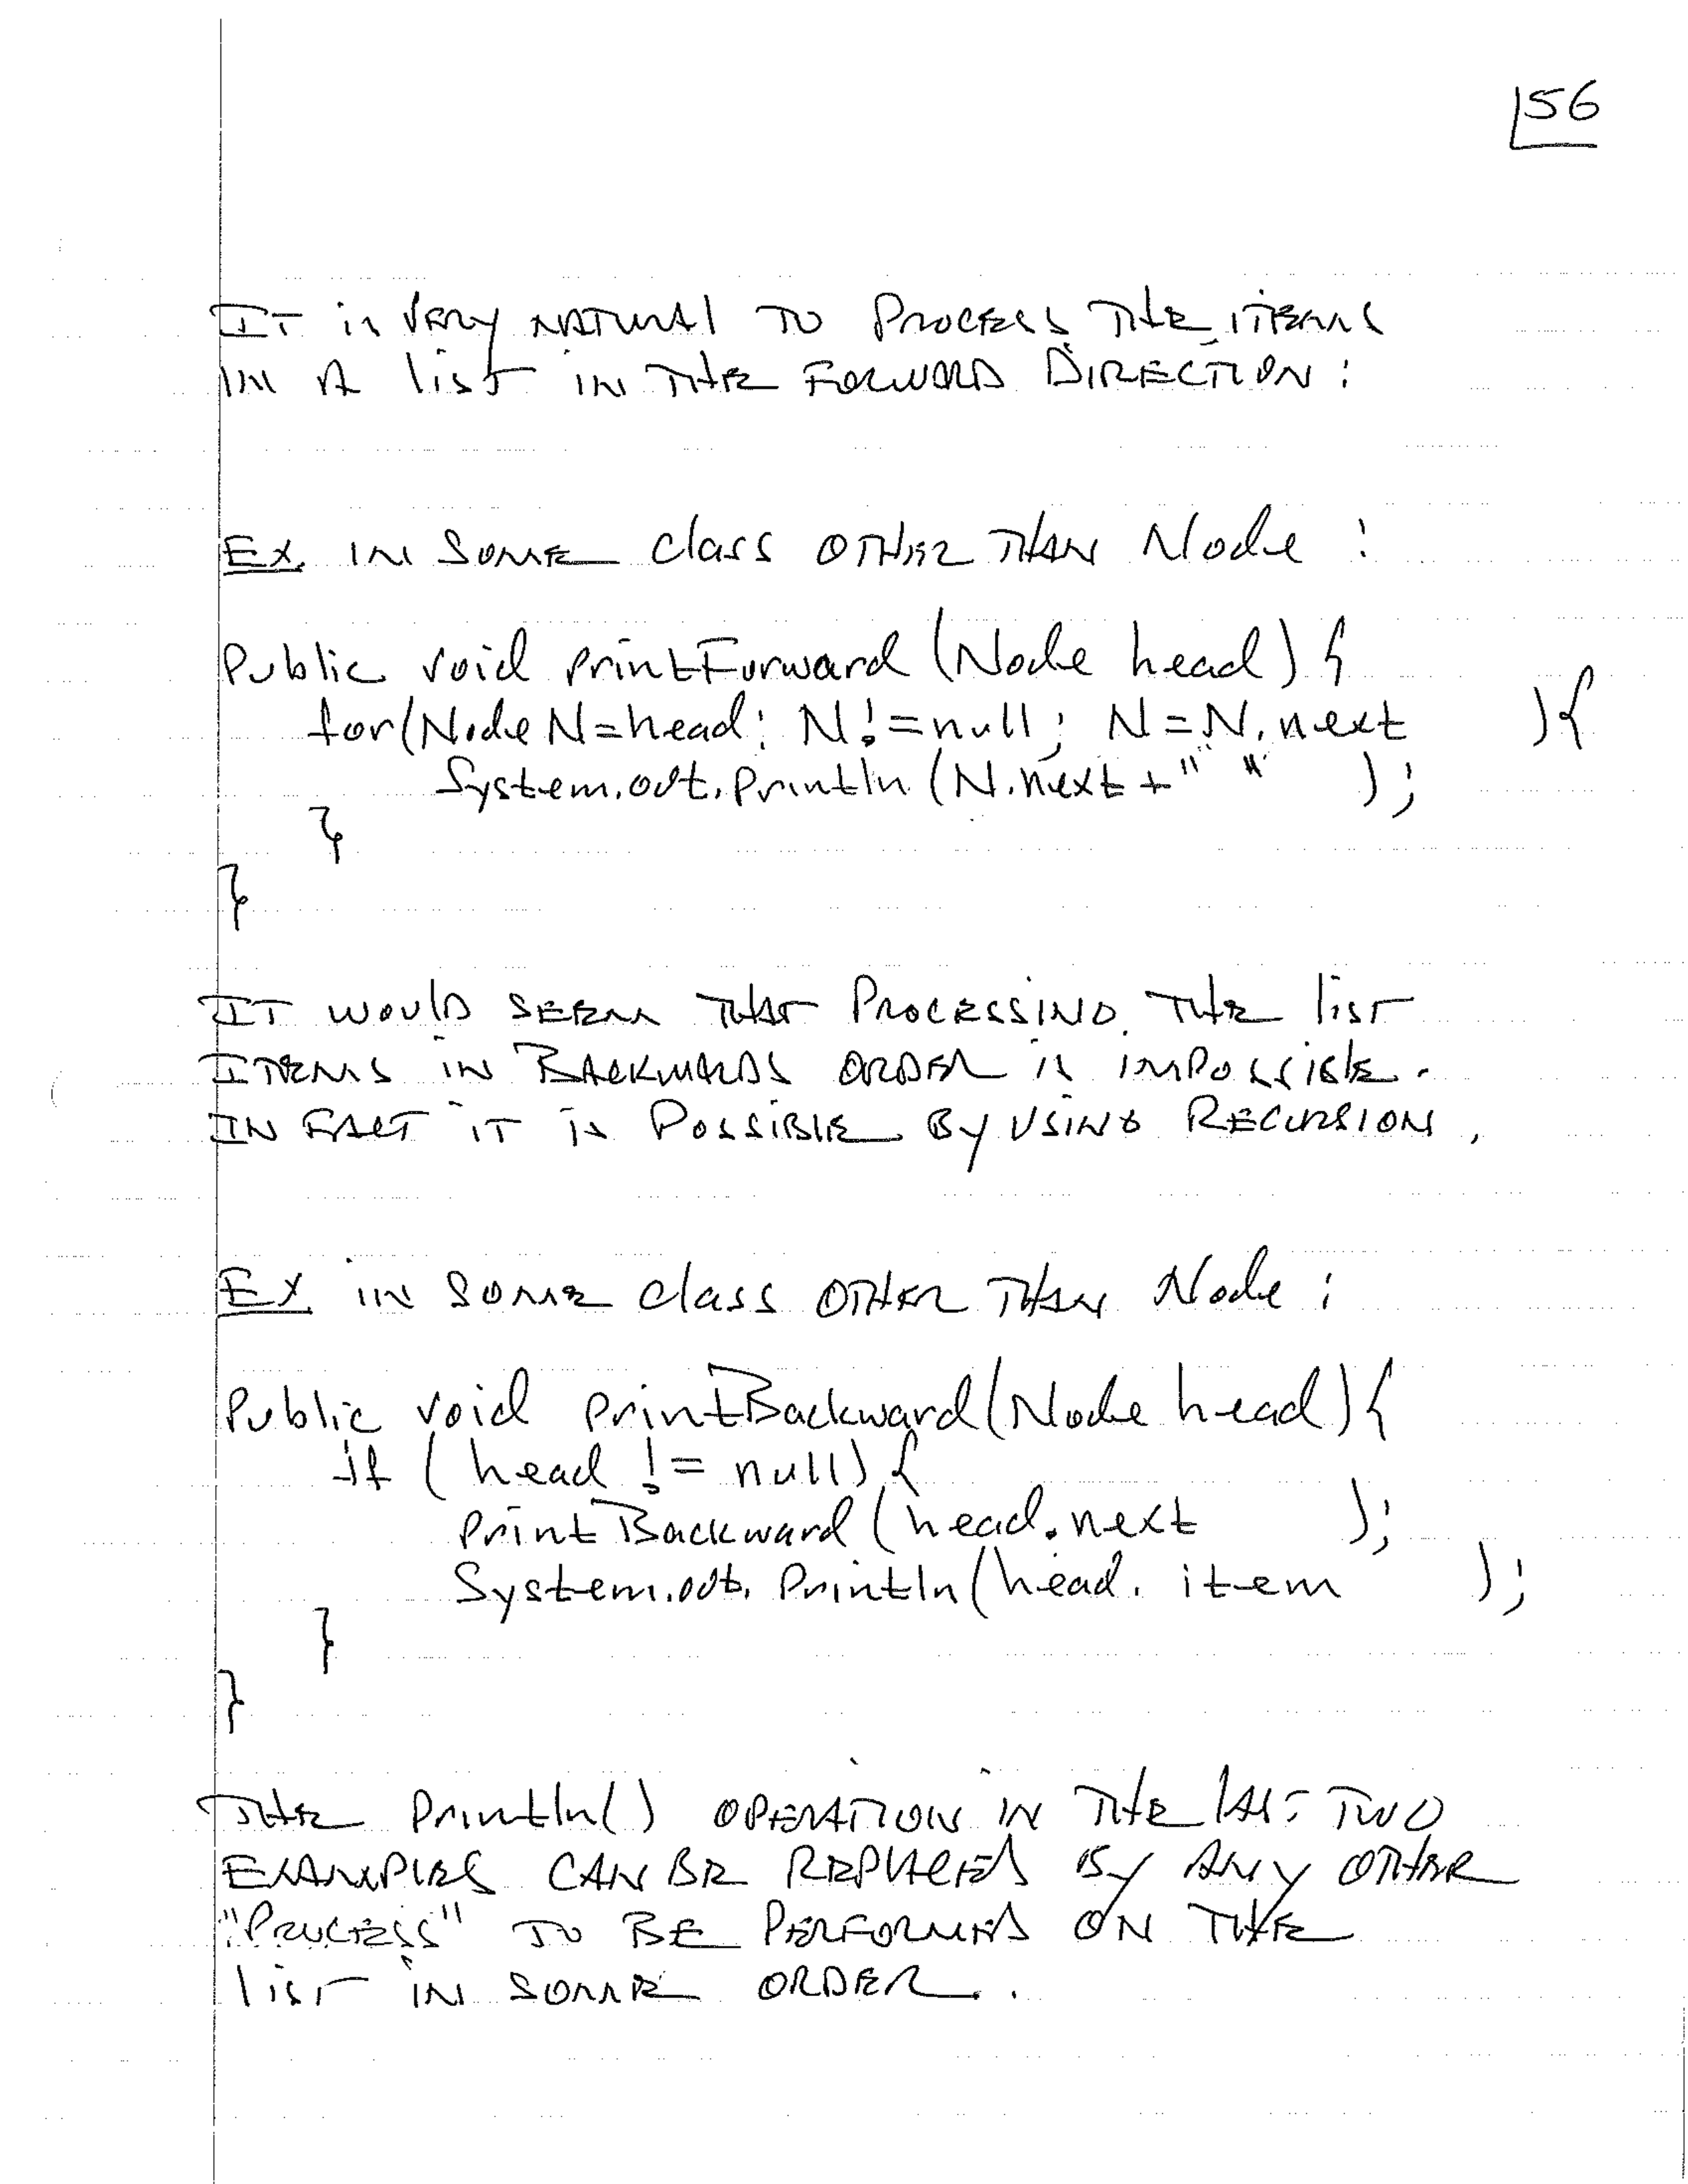 156
IT is VERY NATURAl TO PROCESS THE ITEMS
IN A list IN THE FORWARD DIRECTION:
Ex. IN SOME class OTHER THAN Node :
Public void printForward (Node head) {
for(Node N=head; N!=null; N=N.next ){
System.out.println (N.next+" " );
}
}
IT WOULD SEEM THAT PROCESSING THE list
ITEMS IN BACKWARDS ORDER is IMPOSSIBLE.
IN FACT IT is POSSIBLE BY USING RECURSION.
Ex IN SOME class OTHER THAN Node :
Public void printBackward(Node head){
if ( head != null) {
printBackward (head.next );
System.out.println(head.item );
}
}
THE println() OPERATION IN THE LAST TWO
EXAMPLES CAN BE REPLACED BY ANY OTHER
"PROCESS" TO BE PERFORMED ON THE
list IN SOME ORDER.